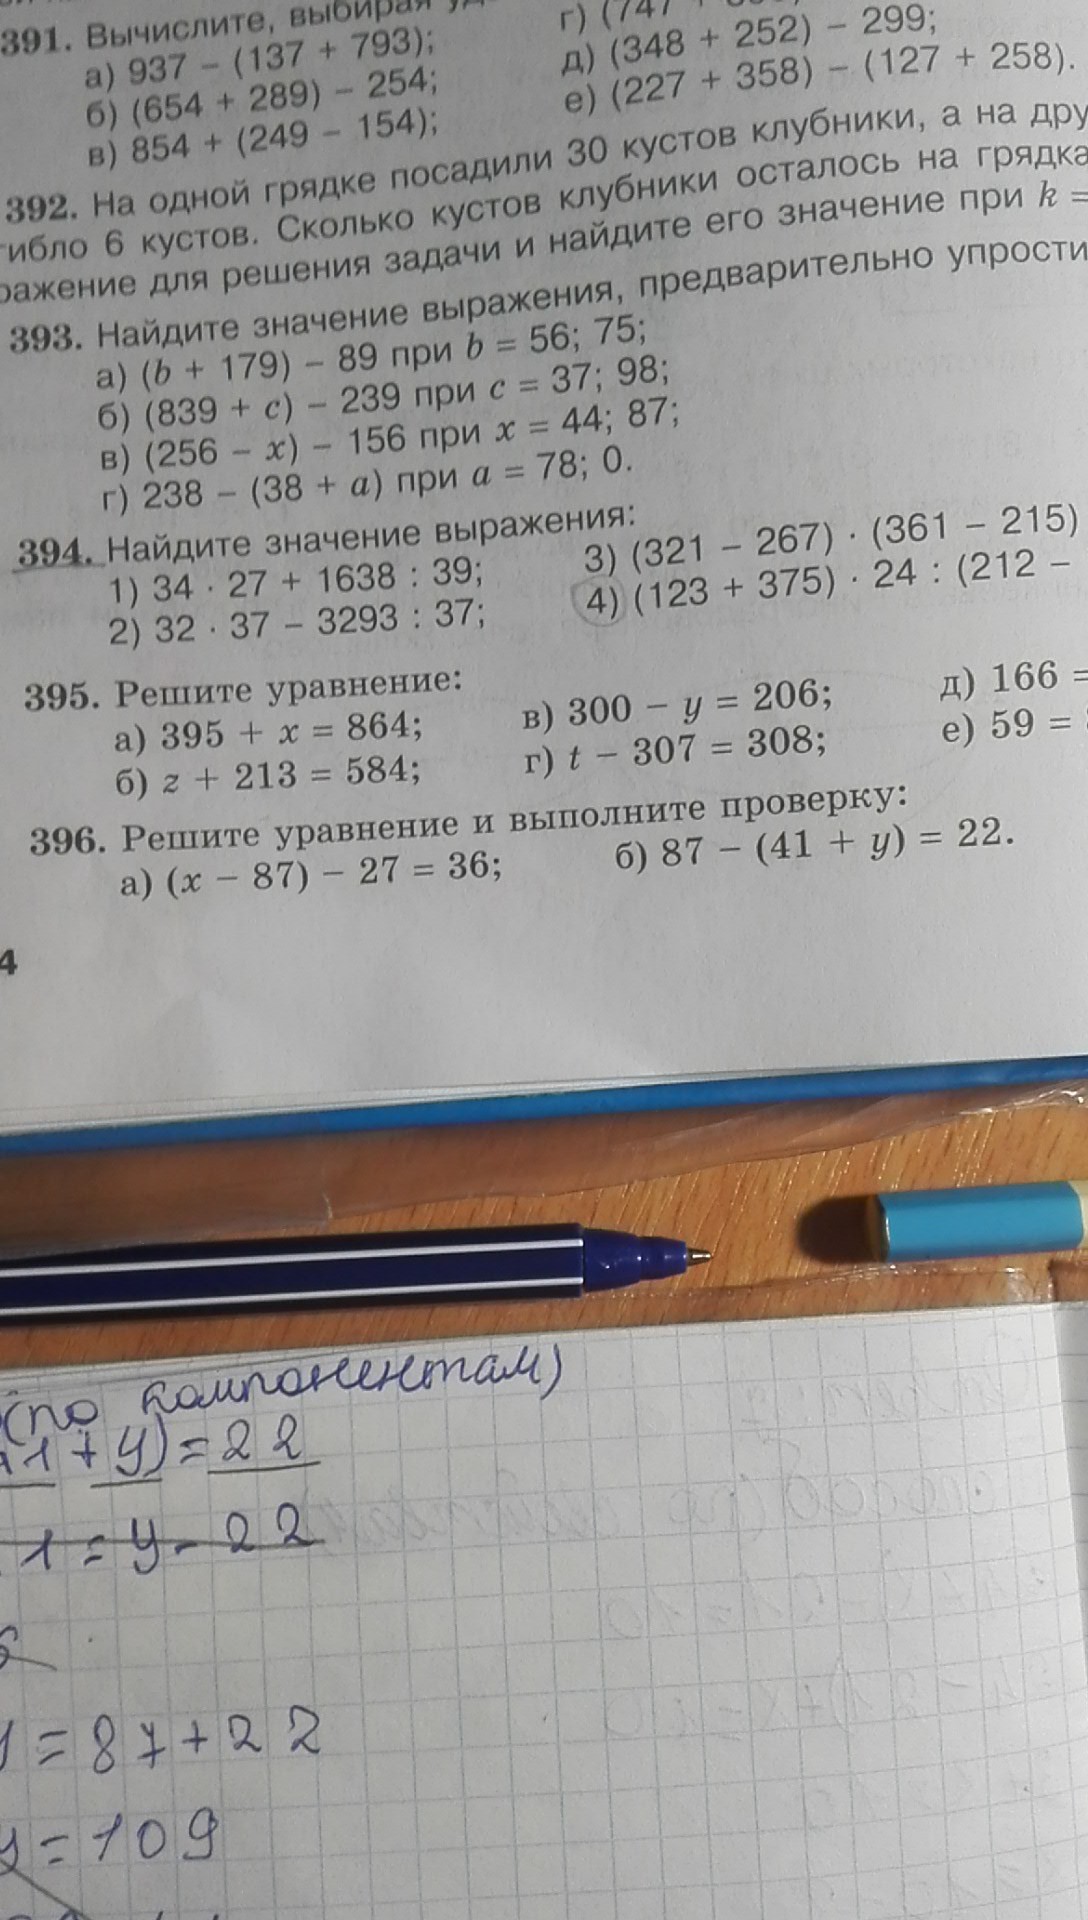 391. Вычислите, выбирая
а) 937 − (137 + 793);
б) (654 + 289) − 254;
в) 854 + (249 − 154);
г) (747 +
д) (348 + 252) − 299;
е) (227 + 358) − (127 + 258).
392. На одной грядке посадили 30 кустов клубники, а на дру
гибло 6 кустов. Сколько кустов клубники осталось на грядка
ражение для решения задачи и найдите его значение при k =
393. Найдите значение выражения, предварительно упрости
а) (b + 179) − 89 при b = 56; 75;
б) (839 + c) − 239 при c = 37; 98;
в) (256 − x) − 156 при x = 44; 87;
г) 238 − (38 + a) при a = 78; 0.
394. Найдите значение выражения:
1) 34 · 27 + 1638 : 39;
2) 32 · 37 − 3293 : 37;
3) (321 − 267) · (361 − 215)
4) (123 + 375) · 24 : (212 −
395. Решите уравнение:
а) 395 + x = 864;
б) z + 213 = 584;
в) 300 − y = 206;
г) t − 307 = 308;
д) 166 =
е) 59 =
396. Решите уравнение и выполните проверку:
а) (x − 87) − 27 = 36;
б) 87 − (41 + y) = 22.
4
(по компонентам)
1 + y) = 22
1 = y - 22
= 87 + 22
y = 109